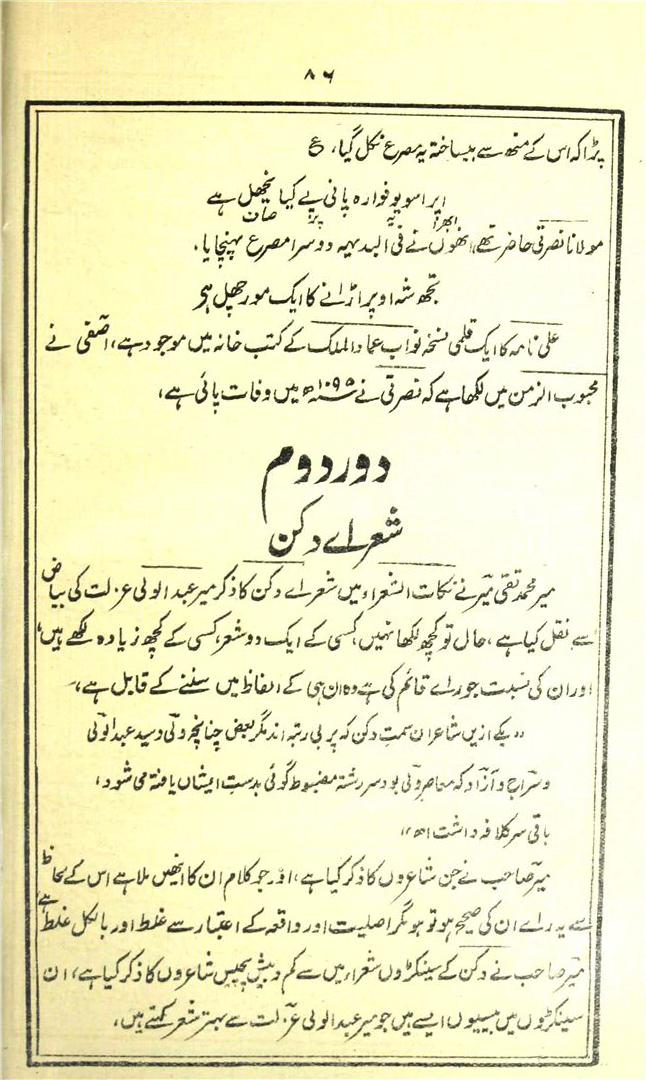 ۸۶
پڑا کہ اس کے منھ سے بیساختہ یہ مصرع نکل گیا، ع
اپر اسو یو فوارہ پانی پے کیا نچھل ہے
ابھرا یہ پر صاف
مولانا نصرتی حاضر تھے، انھوں نے فی البدیہہ دوسرا مصرع پہنچایا۔
تجھ شہ اوپر اڑانے کا ایک مورچھل ہی
علی نامہ کا ایک قلمی نسخہ نواب عماد الملک کے کتب خانہ میں موجود ہے، آصفی نے
محبوب الزمن میں لکھا ہے کہ نصرتی نے ۱۰۹۵ھ میں وفات پائی ہے،
دور دوم
شعراے دکن
میر محمد تقی میر نے نکات الشعراء میں شعراے دکن کا ذکر میر عبد الولی عزلت کی بیاض
سے نقل کیا ہے، حال تو کچھ لکھا نہیں، کسی کے ایک دو شعر، کسی کے کچھ زیادہ لکھے ہیں،
اور ان کی نسبت جو راے قائم کی ہے وہ ان ہی کے الفاظ میں سننے کے قابل ہے،۔
"یکے ازیں شاعران سمت دکن کہ پر بی رتبہ اند مگر بعض چنانچہ ولی و سید عبد الولی
و سراج و آزاد کہ معاصر ولی بود سر رشتہ مضبوط گوئی بدست ایشاں یافتہ می شود،
باقی سر کلافہ داشت اھ"،
میر صاحب نے جن شاعروں کا ذکر کیا ہے، اور جو کلام ان کا انھیں ملا ہے اس کے لحاظ
سے یہ راے ان کی صحیح ہو تو ہو مگر اصلیت اور واقعہ کے اعتبار سے غلط اور بالکل غلط ہے،
میر صاحب نے دکن کے سینکڑوں شعراء میں سے کم و بیش پچیس شاعروں کا ذکر کیا ہے، ان
سینکڑوں میں بیسیوں ایسے ہیں جو میر عبد الولی عزلت سے بہتر شعر کہتے ہیں،